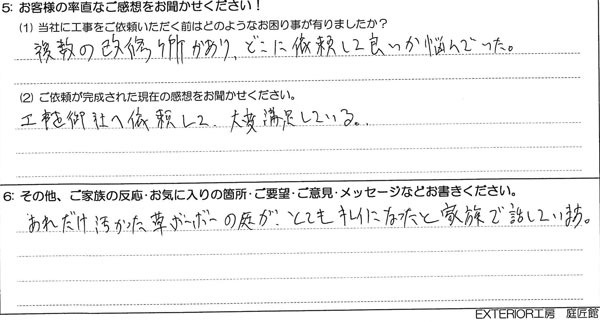 5: お客様の率直なご感想をお聞かせください！
(1) 当社に工事をご依頼いただく前はどのようなお困り事が有りましたか？
複数の改修ヶ所があり、どこに依頼して良いか悩んでいた。
(2) ご依頼が完成された現在の感想をお聞かせください。
工事を御社へ依頼して、大変満足している。
6: その他、ご家族の反応・お気に入りの箇所・ご要望・ご意見・メッセージなどお書きください。
あれだけ汚かった草ボーボーの庭が、とてもキレイになったと家族で話しています。
EXTERIOR工房　庭匠館